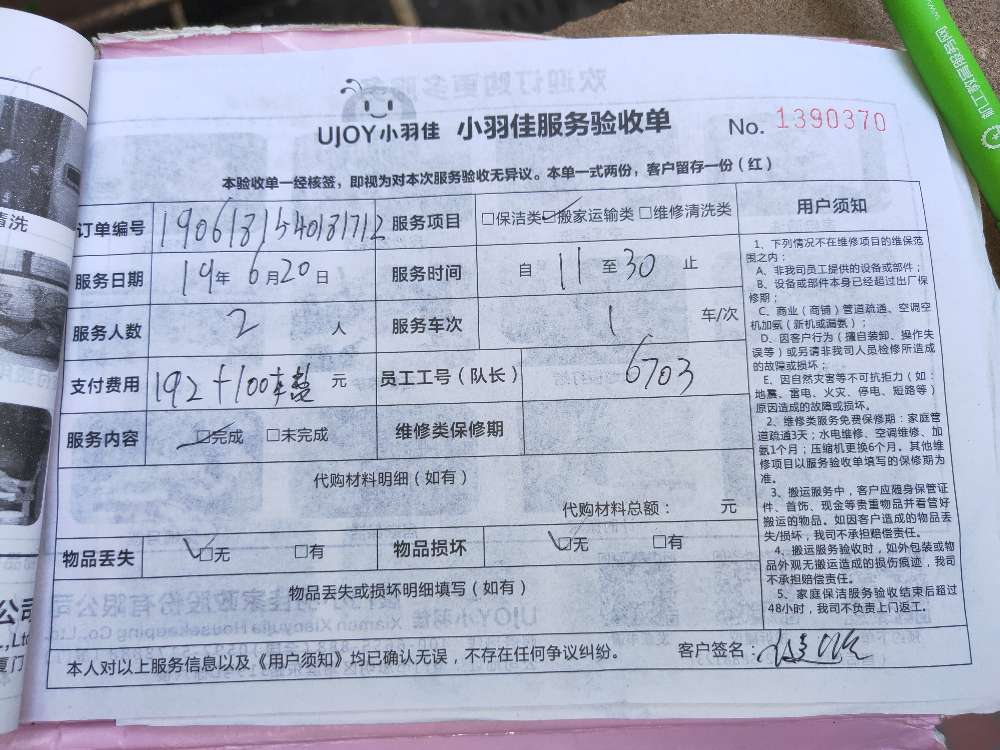 UJOY小羽佳 小羽佳服务验收单 No. 1390370
本验收单一经核签，即视为对本次服务验收无异议。本单一式两份，客户留存一份（红）
订单编号 1906181540181712 服务项目 □保洁类 □搬家运输类 □维修清洗类
服务日期 19年 6月20日 服务时间 自 11 至 30 止
服务人数 2 人 服务车次 1 车/次
支付费用 192+100 元 员工工号（队长） 6703
服务内容 □完成 □未完成 维修类保修期
代购材料明细（如有）
代购材料总额： 元
物品丢失 □无 □有 物品损坏 □无 □有
物品丢失或损坏明细填写（如有）
本人对以上服务信息以及《用户须知》均已确认无误，不存在任何争议纠纷。 客户签名：
用户须知
1、下列情况不在维修项目的维保范
围之内：
A、非我司员工提供的设备或部件；
B、设备或部件本身已经超过出厂保
修期；
C、商业（商铺）管道疏通、空调空
机加氨（新机或漏氨）；
D、因客户行为（擅自装卸、操作失
误等）或另请非我司人员检修所造成
的故障或损坏；
E、因自然灾害等不可抗拒力（如：
地震、雷电、火灾、停电、短路等）
原因造成的故障或损坏。
2、维修类服务免费保修期：家庭管
道疏通3天；水电维修、空调维修、加
氨1个月；压缩机更换6个月。其他维
修项目以服务验收单填写的保修期为
准。
3、搬运服务中，客户应随身保管证
件、首饰、现金等贵重物品并看管好
搬运的物品。如因客户造成的物品丢
失/损坏，我司不承担赔偿责任。
4、搬运服务验收时，如外包装或物
品外观无搬运造成的损伤痕迹，我司
不承担赔偿责任。
5、家庭保洁服务验收结束后超过
48小时，我司不负责上门返工。
清洗
公司
.,Ltd
厦门